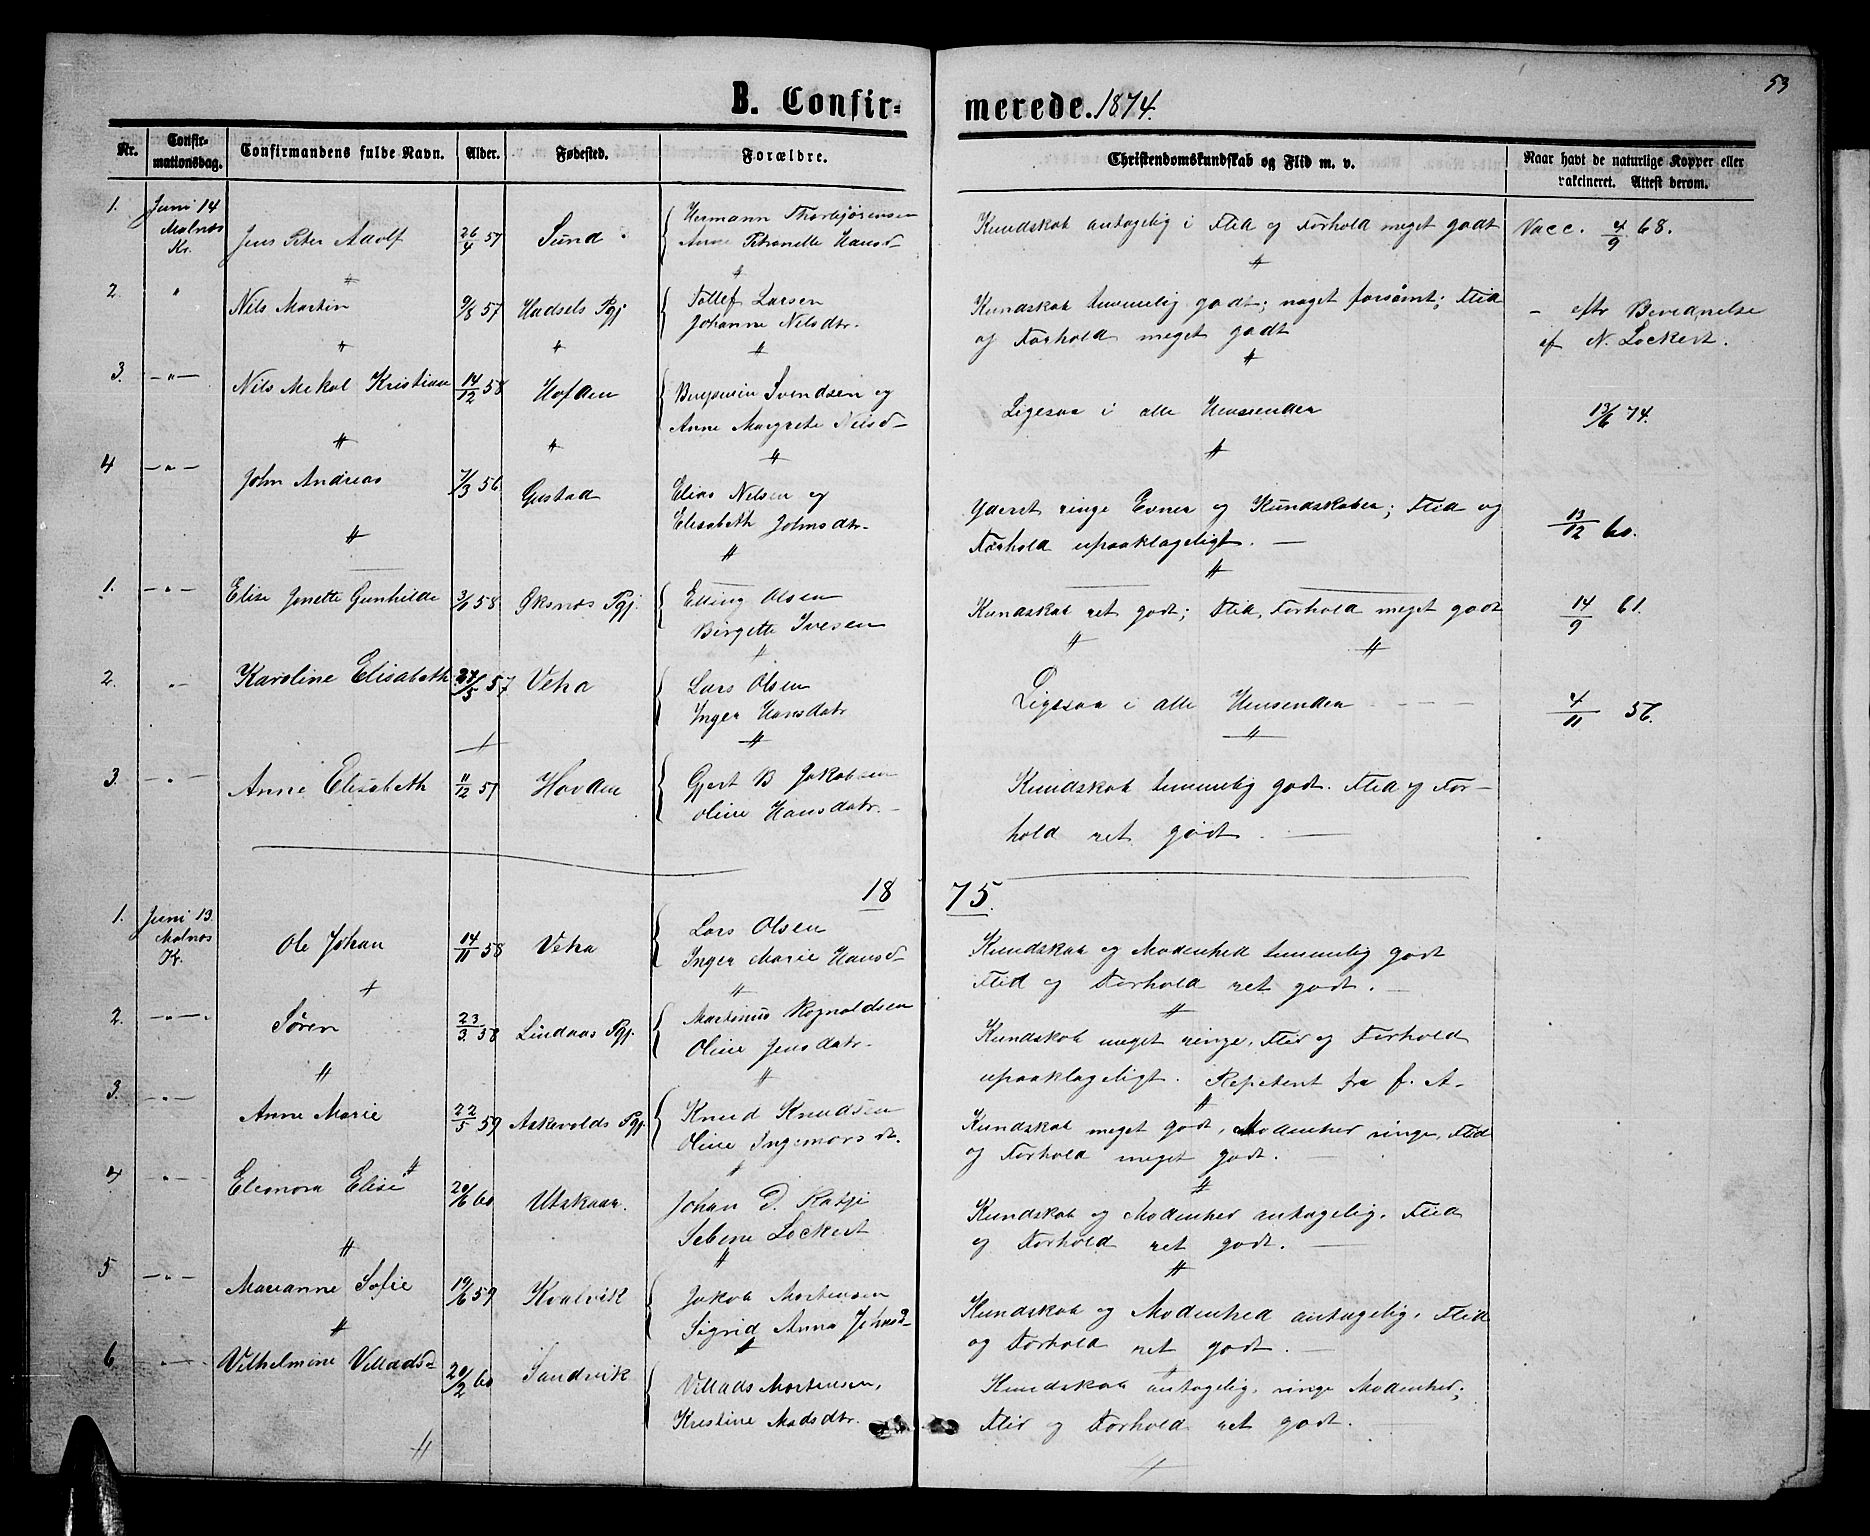 53
B. Confir- merede. 1874.
Nr. Confir-mationsdag. Confirmandens fulde Navn. Alder. Fødested. Forældre. Christendomskundskab og Flid m. v. Naar havt de naturlige Kopper eller vakcineret. Attest derom.
1. Juni 14 Malnes Kr. Jens Peter Adolf 26/4 57 Sund Hermann Thorbjørensen Kundskab antagelig i Flid og Forhold meget godt Vacc. 4/9 68.
Anne Petronelle Hansd-
2. " Nils Martin 9/8 57 Hadsels Pgj. Tollef Larsen Kundskab temmelig godt; noget forsømt; Flid - eftr
Johanne Nilsdtr. og Forhold meget godt af N. Lockert.
3. -"- Nils Mekal Kristian 14/12 58 Hofden Svendsen og Ligesaa i alle Henseender 13/6 74.
Anne Margrete Nilsd-
4 -"- John Andreas 7/3 56 Gustad Elias Nilsen og Yderst ringe Evner og Kundskaber; Flid og 13/12 60.
Elisabeth Johnsdtr. Forhold upaaklageligt. -
1. -"- Elise Jonette Gunhilde 3/1 58 Øksnes Pgj. Elling Olsen Kundskab ret godt; Flid, Forhold meget godt 14/9 61.
Birgette Ivesen
2. -"- Karoline Elisabeth 57 Veka Lars Olsen Ligesaa i alle Henseender 4/11
Inger Hansdatr
3. -"- Anne Elisabeth 11/12 57 Hovden Gjert B Jakobsen Kundskab temmelig godt. Flid og For-
Oline Hansdatr. - hold ret godt. -
18 75.
1. Juni 13. Malnes Kr. Ole Johan 14/11 58 Veka Lars Olsen Kundskab og Modenhed temmelig godt
Inger Marie Hansd- Flid og Forhold ret godt. -
2. -"- Søren 23/3 58 Lindaas Pgj. Martinus Ragnaldsen Kundskab meget ringe, Flid og Forhold
Oline Jensdatr. upaaklageligt. Repetent fra f. A-
3. -"- Anne Marie 22/5 59 Askevolds Pgj. Knud Knudsen Kundskab meget godt, Modenhed ringe, Flid
Oline Ingemarsdt. og Forhold meget godt. -
4 -"- Eleonora Elise 20/6 60 Utskaar. Johan D. Ratje Kundskab og Modenhed antagelig, Flid
Sebine Lockert og Forhold ret godt. -
5 -"- Marianne Sofie 19/6 59 Kvalvik Jakob Mortensen Kundskab og Modenhed antagelig, Flid
Sigrid Anna Johnsd- og Forhold ret godt. -
6 -"- Vilhelmine Villadsd- 20/2 60 Sandvik Villads Mortensen, Kundskab antagelig, ringe Modenhed;
Kristine Madsdtr. Flid og Forhold ret godt.